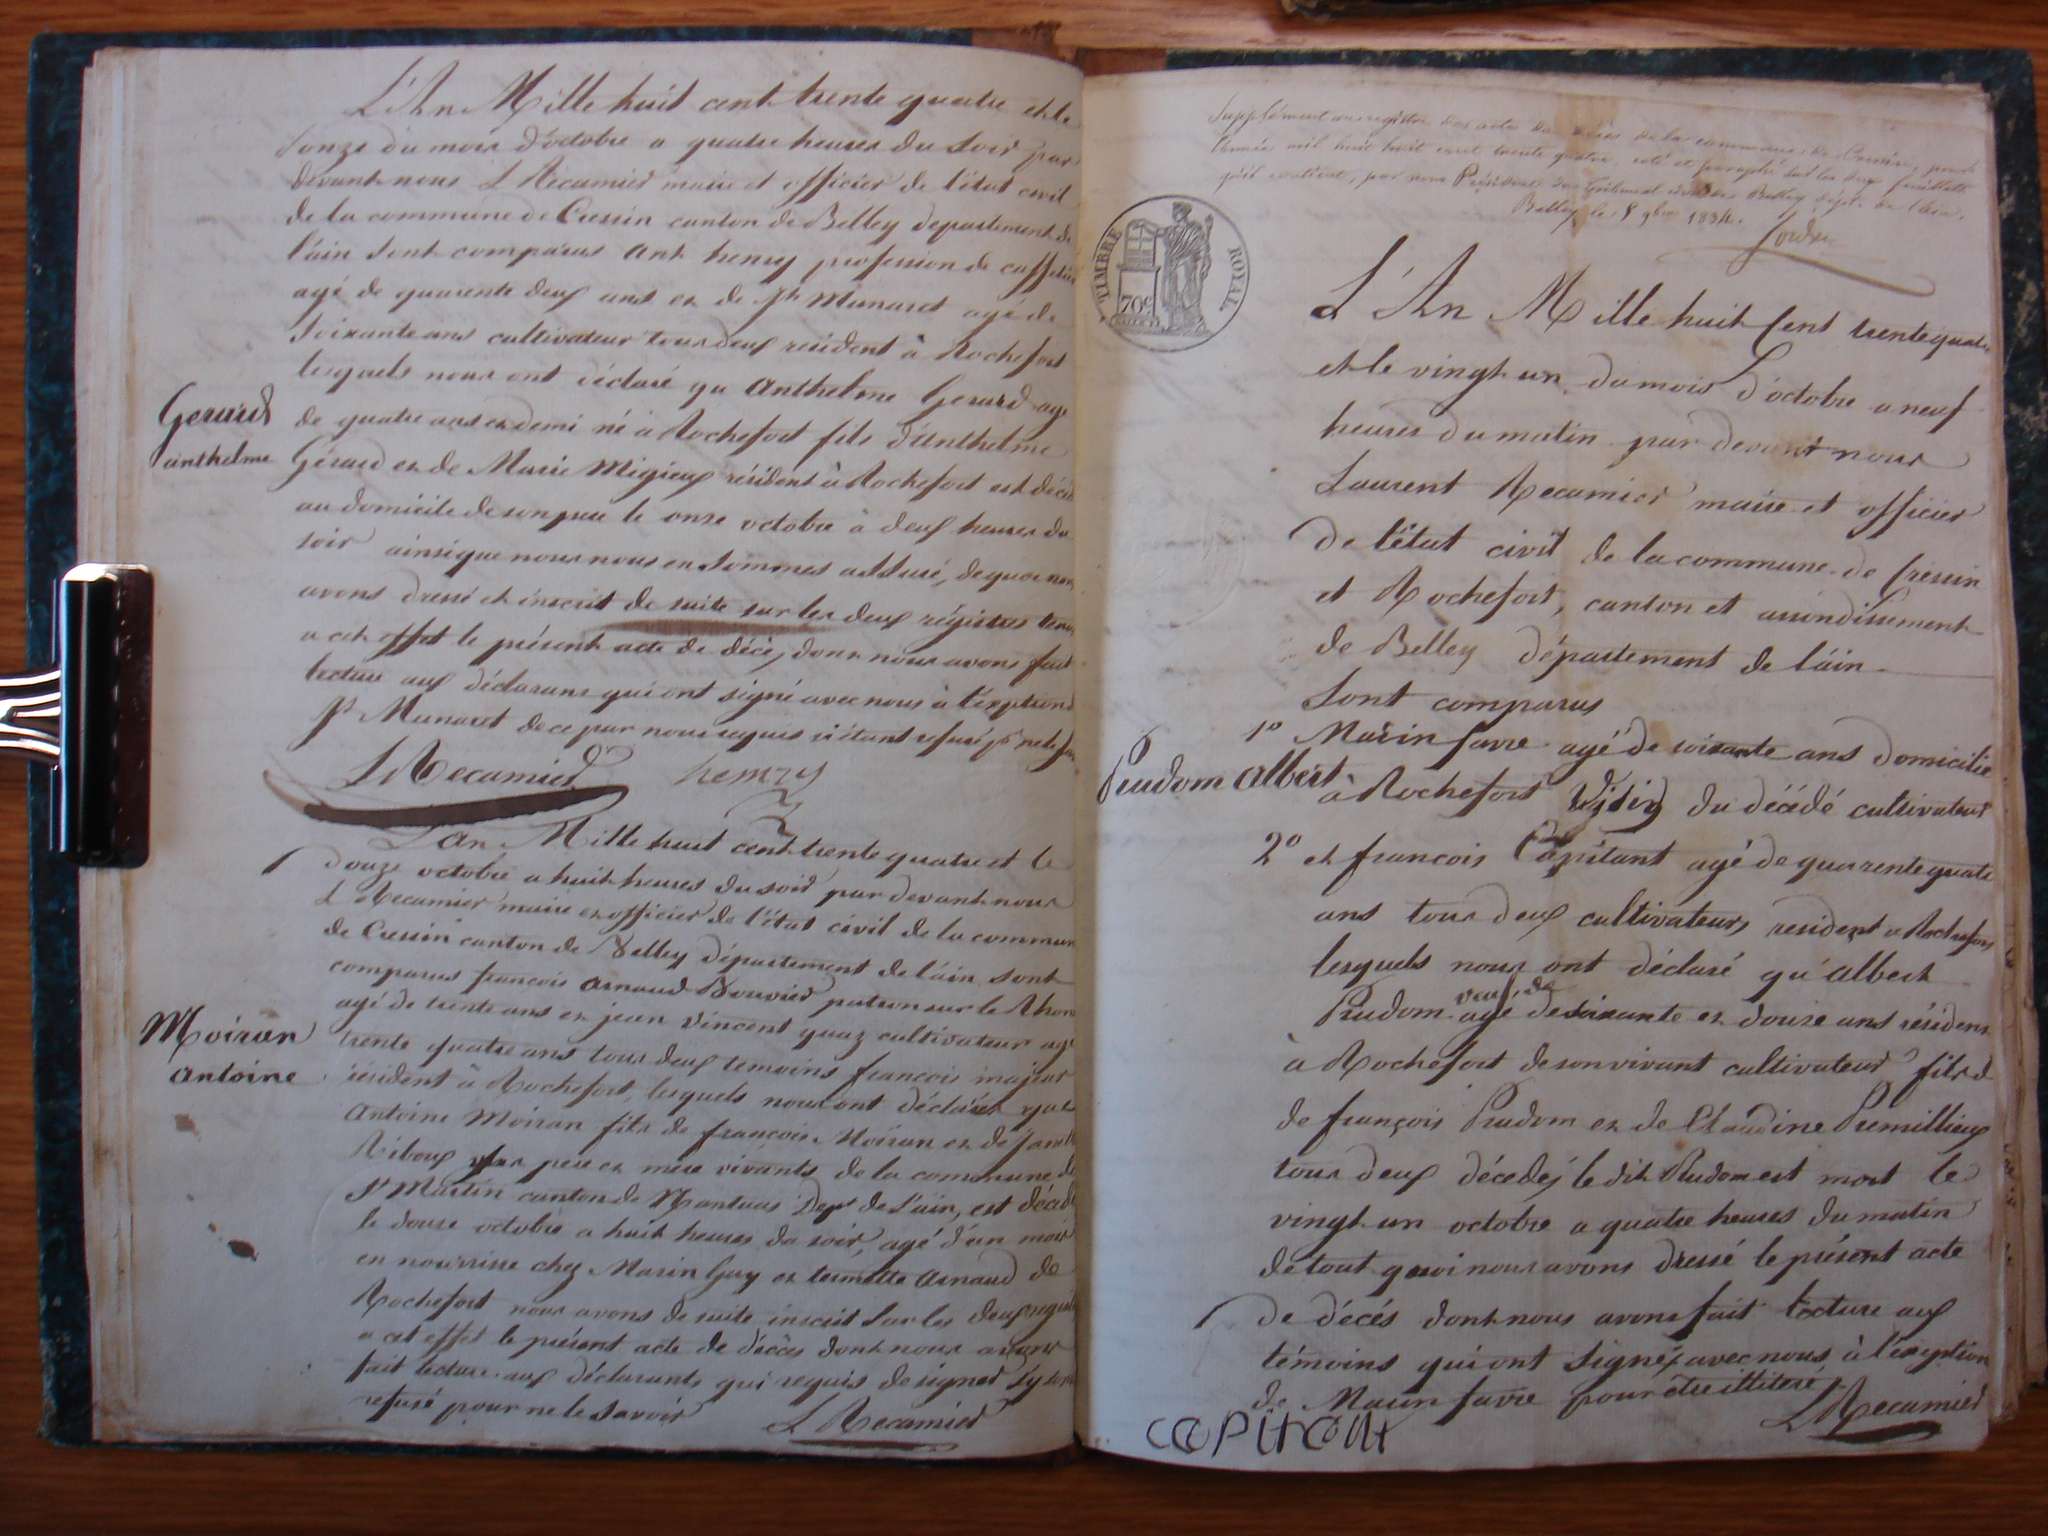 L'An Mille huit cent trente quatre et le
onze du mois d'octobre a quatre heures du soir par
devant nous L Recamier maire et officier de l'état civil
de la commune de Cressin canton de Belley departement de
l'ain sont comparus Ant henry profession de
agé de quarente deux ans et de Jh Munaret agé de
soixante ans cultivateur tous deux résident à Rochefort
lesquels nous ont déclaré qu Anthelme Gerard age
Gerard
anthelme
de quatre ans et demi né à Rochefort fils d'anthelme
Gérard et de Marie Migieux résident à Rochefort est décédé
au domicile de son père le onze octobre à deux heures du
soir ainsi que nous nous en sommes assuré, de quoi nous
avons dressé et inscrit de suite sur les deux régistres tenus
a cet effet le présent acte de décès, dont nous avons fait
lecture aux déclarans qui ont signé avec nous à l'éxeption
Jh Munaret de ce par nous requis s'étant refusé pr ne le
L Recamier henry
L'an Mille huit cent trente quatre et le
douze octobre a huit heures du soir par devant nous
L Recamier maire et officier de l'état civil de la commune
de Cressin canton de Belley département de l'ain sont
comparus françois Arnaud Bouvier patron sur le Rhone
agé de trente ans et jean vincent guaz cultivateur agé
Moiran
Antoine
trente quatre ans tous deux temoins françois majeur
résident à Rochefort, lesquels nous ont déclarés que
Antoine Moiran fils de francois Moiran et de
Riboux père et mère vivants de la commune de
St Martin canton de Nantuas Dept de l'ain, est décédé
le douze octobre a huit heures du soir, agé d'un mois
en nourrisse chez Marin Guy et Arnaud de
Rochefort nous avons de suite inscrit sur les deux
a cet effet le présent acte de décès dont nous avons
fait lecture aux déclarants qui requis de signer s'y sont
refusé pour ne le savoir L Recamier
Supplément au registre des actes de décès de la commune de Cressin, pour
l'année mil huit huit cent trente quatre, coté et paraphé sur les deux feuillets
qu'il contient, par nous Président du Tribunal de Belley dépt. de l'ain.
Belley, le 8 9bre 1834.
TIMBRE ROYAL
70c
L'An Mille huit Cent trente quatre
et le vingt un du mois d'octobre a neuf
heures du matin par devant nous
Laurent Recamier maire et officier
de l'état civil de la commune de Cressin
et Rochefort, canton et arrondissement
de Belley département de l'ain
Sont comparus
1o Marin favre agé de soixante ans domicilié
Prudom Albert
a Rochefort voisin du décédé cultivateur
2o et francois Capitant agé de quarente quatre
ans tous deux cultivateurs resident a Rochefort
lesquels nous ont déclaré qu'albert
veuf de
Prudom agé de soixante et douze ans résident
à Rochefort de son vivant cultivateur fils d
de françois Prudom et de Claudine Premillieux
tous deux décedés le dit Prudom est mort le
vingt un octobre a quatre heures du matin
de tout quoi nous avons dressé le présent acte
de décés dont nous avons fait lecture aux
témoins qui ont signés avec nous à l'éxeption
de Marin favre pour être illiteré L Recamier
capitant